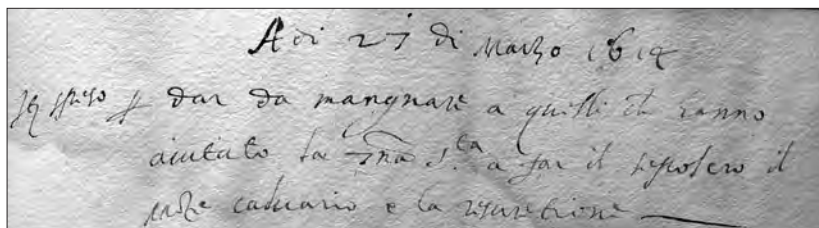 Adi 27 di Marzo 1614
speso p dar da mangnare a quelli che hanno
aiutato la s.ta a far il sepolcro il
caluario e la resuretione